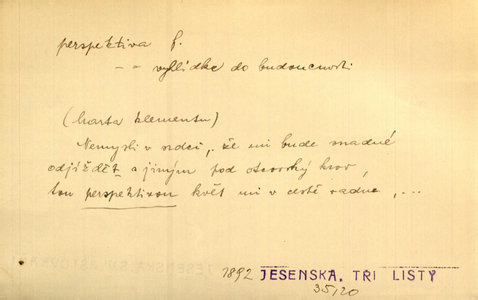 perspektiva f.
-- vyhlídka do budoucnosti
(Marta Klementu)
Nemysli v srdci, že mi bude snadné
odjíždět a jiným pod otcovský krov,
tou perspektivou květ mi v cestě vadne, ...
1892 JESENSKA, TRI LISTY
35/20